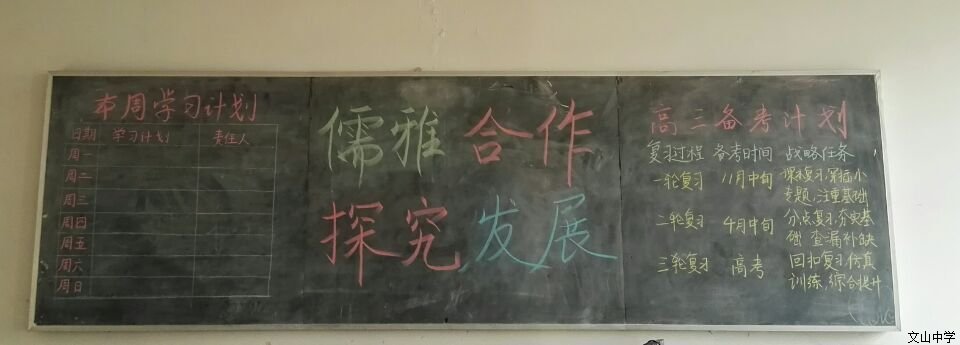 本周学习计划
日期 学习计划 责任人
周一
周二
周三
周四
周五
周六
周日
儒雅 合作
探究 发展
高三备考计划
复习过程 备考时间 战略任务
一轮复习 11月中旬 课程复习,穿插小
专题,注重基础
二轮复习 4月中旬 分点复习,夯实基
础 查漏补缺
三轮复习 高考 回扣复习 仿真
训练,综合提升
文山中学